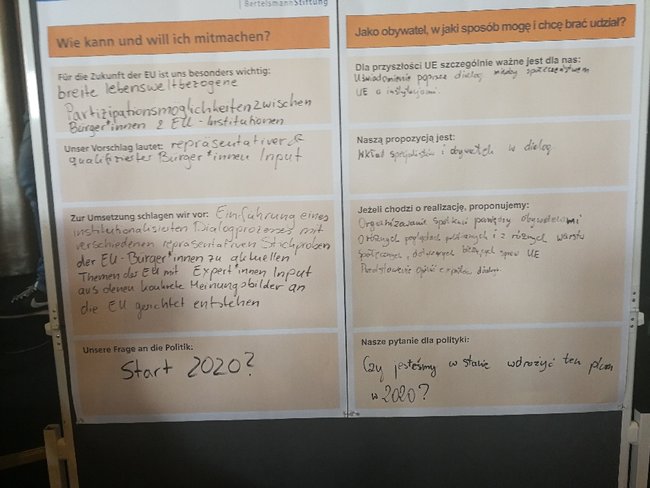 BertelsmannStiftung
Wie kann und will ich mitmachen?
Für die Zukunft der EU ist uns besonders wichtig:
breite lebensweltbezogene
Partizipationsmöglichkeiten zwischen
Bürger*innen & EU-Institutionen
Unser Vorschlag lautet: repräsentativer &
qualifizierter Bürger*innen Input
Zur Umsetzung schlagen wir vor: Einführung eines
institutionalisierten Dialogprozesses mit
verschiedenen repräsentativen Stichproben
der EU-Bürger*innen zu aktuellen
Themen der EU mit Expert*innen Input
aus denen konkrete Meinungsbilder an
die EU gerichtet entstehen
Unsere Frage an die Politik:
Start 2020?
Jako obywatel, w jaki sposób mogę i chcę brać udział?
Dla przyszłości UE szczególnie ważne jest dla nas:
Uświadomienie poprzez dialog między społeczeństwem
UE a instytucjami.
Naszą propozycją jest:
Wkład specjalistów i obywateli w dialog
Jeżeli chodzi o realizację, proponujemy:
Organizowanie spotkań pomiędzy obywatelami
o różnych poglądach politycznych i z różnych warstw
społecznych, dotyczących bieżących spraw UE
Przedstawienie opinii z dialogu
Nasze pytanie dla polityki:
Czy jesteśmy w stanie wdrożyć ten plan
w 2020?